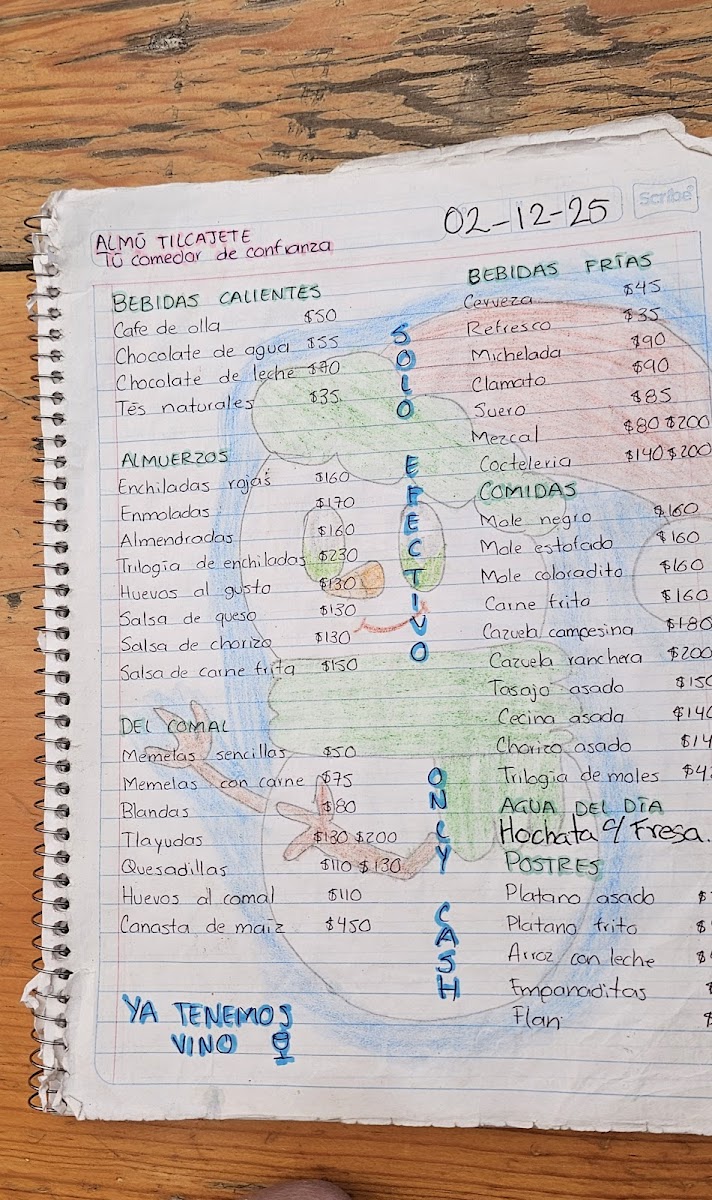 Scribe
02-12-25
ALMÚ TILCAJETE
TÚ comedor de confianza
BEBIDAS CALIENTES
Cafe de olla $50
Chocolate de agua $55
Chocolate de leche $70
Tés naturales $35
ALMUERZOS
Enchiladas rojas $160
Enmoladas $170
Almendradas $160
Trilogia de enchiladas $230
Huevos al gusto $130
Salsa de queso $130
Salsa de chorizo $130
Salsa de carne frita $150
DEL COMAL
Memelas sencillas $50
Memelas con carne $75
Blandas $80
Tlayudas $130 $200
Quesadillas $110 $130
Huevos al comal $110
Canasta de maiz $450
YA TENEMOS
VINO
SOLO
EFECTIVO
ONLY
CASH
BEBIDAS FRÍAS
Cerveza $45
Refresco $35
Michelada $90
Clamato $90
Suero $85
Mezcal $80 $200
Cocteleria $140 $200
COMIDAS
Mole negro $160
Mole estofado $160
Mole coloradito $160
Carne frita $160
Cazuela campesina $180
Cazuela ranchera $200
Tasajo asado $150
Cecina asada $140
Chorizo asado $14
Trilogia de moles $4
AGUA DEL DÍA
Hochata c/ Fresa.
POSTRES
Platano asado $
Platano frito $
Arroz con leche $
Empanaditas $
Flan $